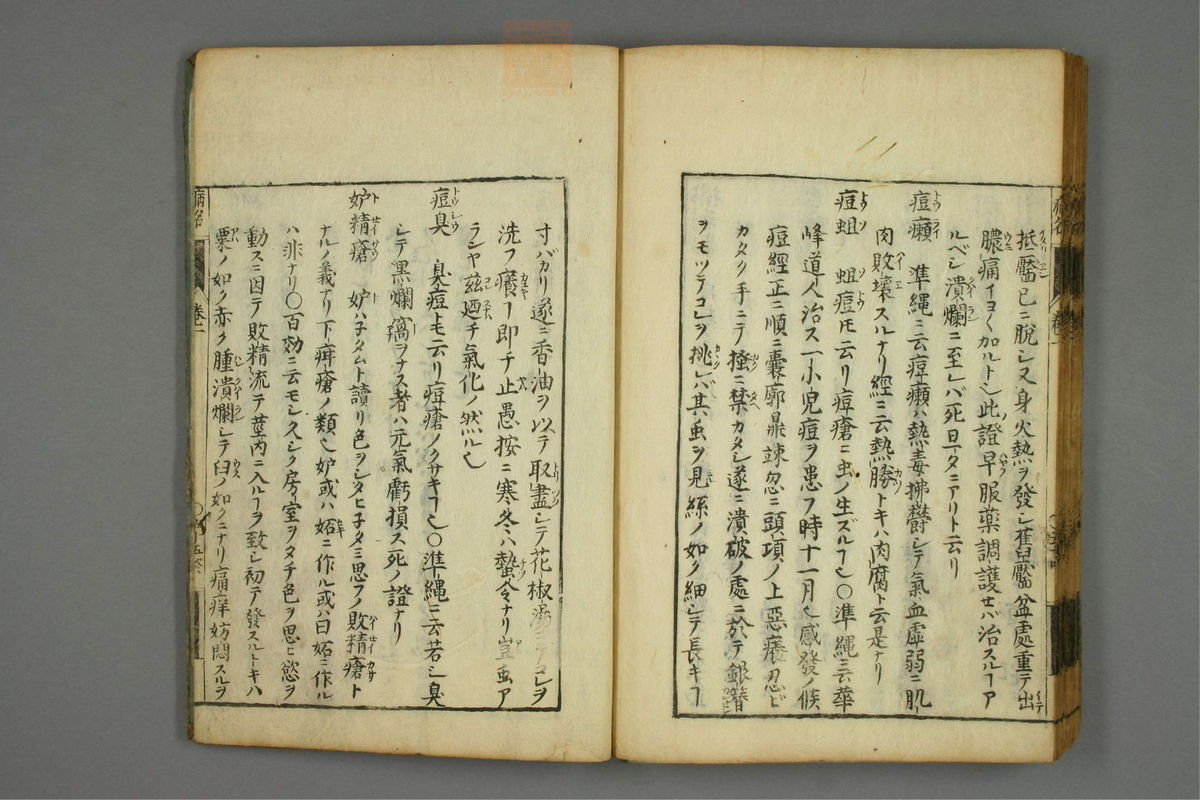 抵靨已ニ脱シ又身火熱ヲ發シ舊靨盆處重テ出
膿痛イヨ〱加ルトシ此證早服薬調護セバ治スルヿア
ルベシ潰爛ニ至レバ死旦夕ニアリト云リ
痘癩 準縄ニ云痘癩ハ熱毒拂欝シテ氣血虚弱ニ肌
肉敗壊スルナリ經ニ云熱勝トキハ肉腐ト云是ナリ
痘蛆 蛆痘モ云リ痘瘡ニ虫ノ生ズルヿ也〇準縄ニ云華
峰道人治ス一小児痘ヲ患フ時十一月也感發ノ候
痘經正ニ順ニ嚢廓鼎竦忽ニ頭項ノ上惡癢忍ビ
カタク手ニテ掻ニ禁カタシ遂ニ潰破ノ處ニ於テ銀簪
ヲモツテコレヲ挑レバ其虫ヲ見絲ノ如ク細シテ長キヿ
寸バカリ遂ニ香油ヲ以テ取盡シテ花椒湯ニテコレヲ
洗フ癢ヿ即チ止愚按ニ寒冬ハ蟄令ナリ豈虫ア
ランヤ茲廼チ氣化ノ然ル也
痘臭 臭痘トモ云リ痘瘡ノクサキヿ也〇準縄ニ云若シ臭
シテ黒爛窩ヲナス者ハ元氣虧損ス死ノ證ナリ
妒精瘡 妒ハ子タムト讀リ色ヲシタヒ子タミ思フノ敗精瘡ト
ナルノ義ナリ下疳瘡ノ類也妒或ハ妬ニ作ル或ハ曰妬ニ作ル
ハ非ナリ〇百効ニ云モシ久シク房室ヲタチ色ヲ思ヒ慾ヲ
動スニ因テ敗精流テ莖内ニ入ルヿヲ致シ初テ發スルトキハ
粟ノ如ク赤ク腫潰爛シテ臼ノ如クニナリ痛痒妨悶スルヲ
病名
卷二